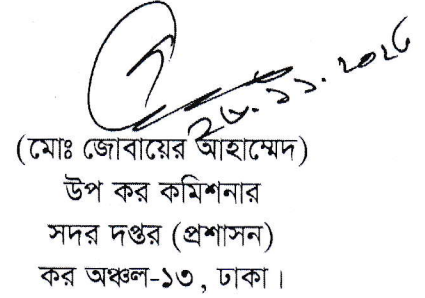 (মোঃ জোবায়ের আহাম্মেদ)
উপ কর কমিশনার
সদর দপ্তর (প্রশাসন)
কর অঞ্চল-১৩, ঢাকা।